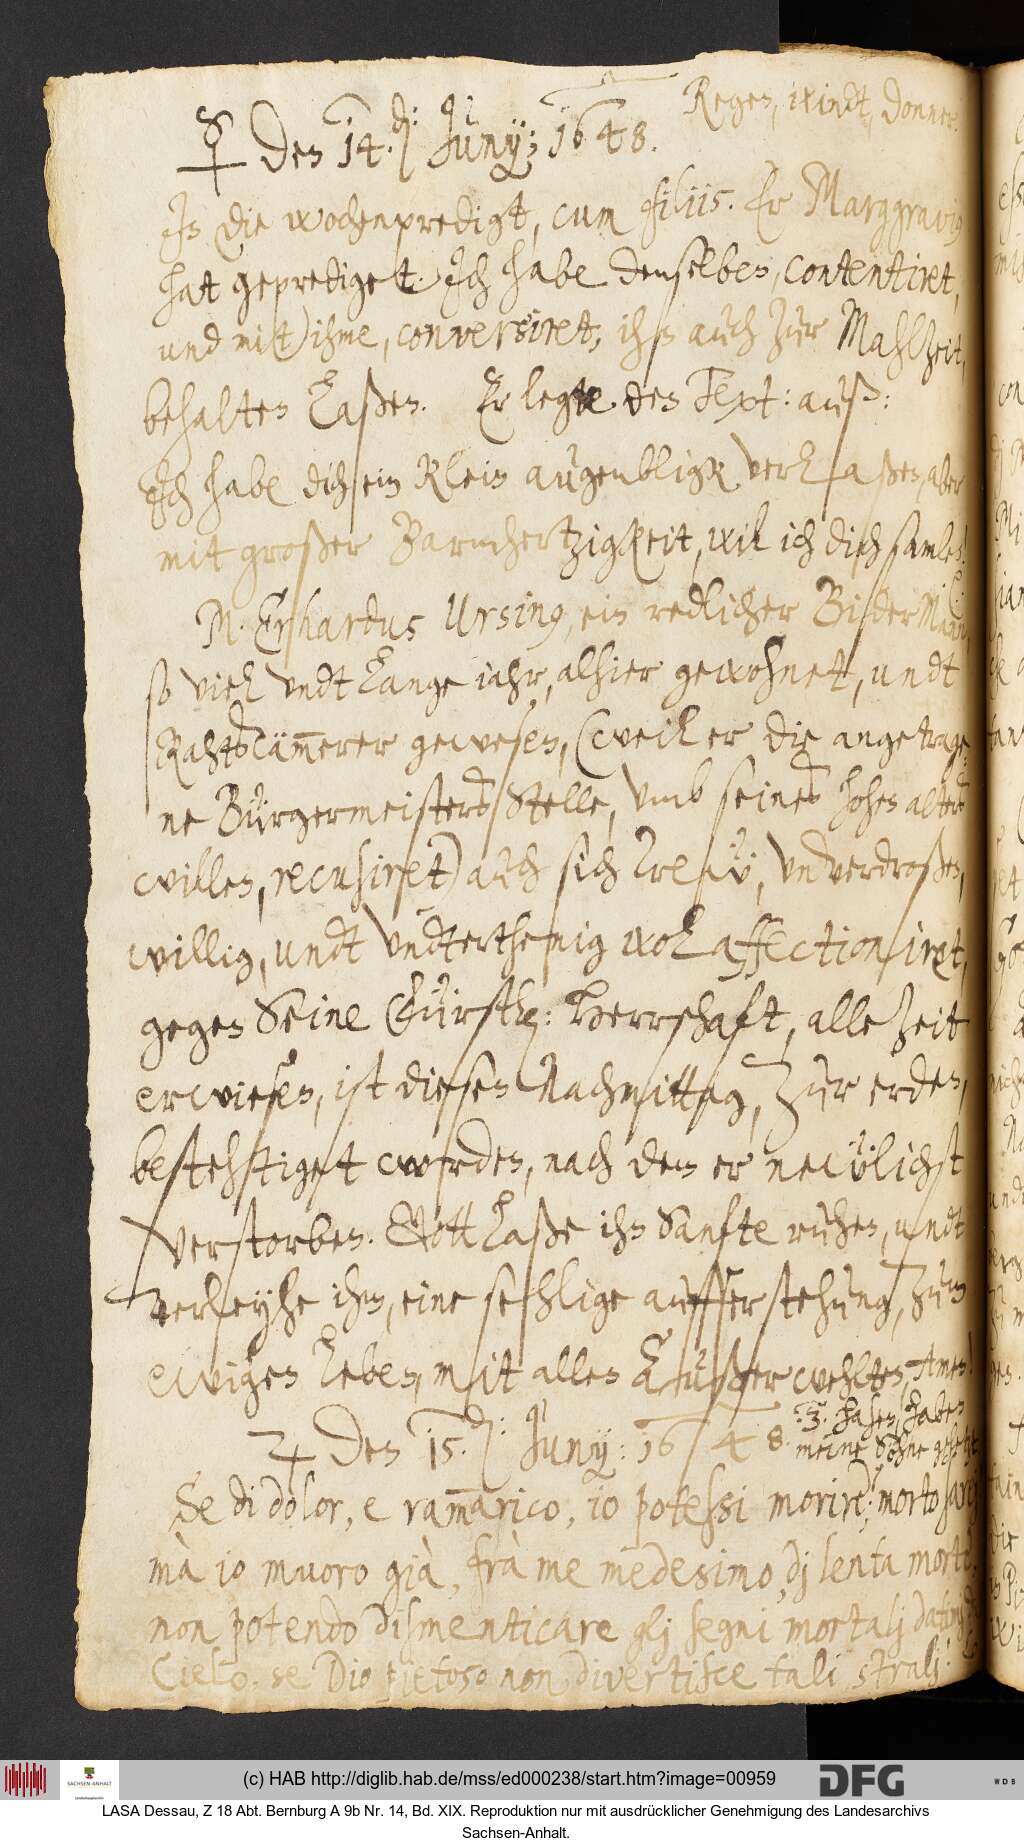 Regen, windt, donner.
☿ Den 14.den Juny; 1648.
In die wochenpredigt, cum filiis. Er Marggravig
hat geprediget. Ich habe denselben, contentiret,
und mit ihme, conversiret, ihn auch zur Mahlzeit,
behalten laßen. Er legte den Text: auß:
Ich habe dich ein klein augenbligk verlaßen, aber
mit großer Barmhertzigkeit, wil ich dich samlen.
M. Erhardus Ursing, ein redlicher BiderMann,
so viel undt lange iahr, alhier gewohnet, undt
Rahtscämmerer gewesen, (weil er die angetrage-
ne Bürgermeisters Stelle, umb seines hohen alters
willen, recusiret) auch sich treü, undverdroßen,
willig, undt undterthenig wol affectioniret,
gegen Seine Fürstl: Herrschaft, alle Zeit
erwiesen, ist diesen Nachmittag, zur erden,
bestehtiget worden, nach dem er newlichst
verstorben. Gott laße ihn Sanfte ruhen, undt
verleyhe ihm, eine sehlige aufferstehung, zum
ewigen leben, mit allen Außerwehlten, Amen!
♃ Den 15.den Juny: 1648. 3. hasen, haben
meine Söhne gehetzt
Se di dolor, e ram̄arico, io potessi morire; morto sarej
mà io muoro già, frà me medesimo, dj lenta morte,
non potendo dismenticare glj segni mortalj datimj
Cielo, se Dio pietoso non divertisce tali stralj.
(c) HAB http://diglib.hab.de/mss/ed000238/start.htm?image=00959
SACHSEN-ANHALT
DFG
WDB
LASA Dessau, Z 18 Abt. Bernburg A 9b Nr. 14, Bd. XIX. Reproduktion nur mit ausdrücklicher Genehmigung des Landesarchivs
Sachsen-Anhalt.